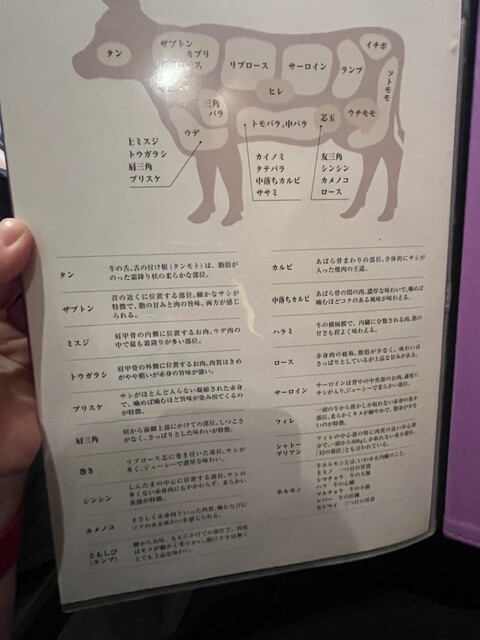 タン
ザブトン
カブリ
リブロース
サーロイン
ランプ
イチボ
ソトモモ
ヒレ
三角
バラ
ウデ
トモバラ、中バラ
芯玉
ウチモモ
上ミスジ
トウガラシ
肩三角
ブリスケ
カイノミ
タテバラ
中落ちカルビ
ササミ
友三角
シンシン
カメノコ
ロース
タン
牛の舌、舌の付け根(タンモト)は、脂肪が
のった霜降り状の柔らかな部位。
ザブトン
首の近くに位置する部位。細かなサシが
特徴で、脂の甘みと肉の旨味、両方が感じ
られる。
ミスジ
肩甲骨の内側に位置するお肉。ウデ肉の
中で最も霜降りが多い部位。
トウガラシ
肩甲骨の外側に位置するお肉。肉質はきめ
がやや粗いが赤身の旨味が強い。
ブリスケ
サシがほとんど入らない凝縮された赤身
で、噛めば噛むほど旨味が染み出てくるの
が特徴。
肩三角
肩から前脚上部にかけての部位。しつこさ
がなく、さっぱりとした味わいが特徴。
巻き
リブロース芯に巻き付いた部位。サシが
多く、ジューシーで濃厚な味わい。
シンシン
しんたまの中心に位置する部位。サシの
多くない赤身肉にもかかわらず、柔らかい
食感が特徴。
カメノコ
まさしく赤身肉といった肉質。噛むたびに
コクのある味わいを感じられる。
ともしび
(ランプ)
腰からお尻、ももにかけての部位で、肉質
はキメが細かく柔らかい。
とても上品な味わい。
カルビ
あばら骨まわりの部位。全体的にサシが
入った焼肉の王道。
中落ちカルビ
あばら骨の間の肉。濃厚な味わいで、噛め
ば噛むほどコクのある風味が味わえる。
ハラミ
牛の横隔膜で、内臓に分類される肉。脂の
甘さも程よく味わえる。
ロース
赤身肉の総称。脂肪が少なく、味わいは
さっぱりとしているが上品な甘みがある。
サーロイン
サーロインは背中の中央部のお肉。適度に
サシが入り、ジューシーで柔らかい部位。
フィレ
一頭の牛から僅かしか取れない赤身の希少
部位。柔らかくキメが細やかで、脂身が少な
いのが特徴。
シャトー
ブリアン
フィレの中心部の特に肉質の良い中心部
分で、一頭から600gしか取れない希少部位。
「幻の部位」とも言われている。
ホルモン
牛ホルモンとは、いわゆる内臓のこと。
ミノ 一つ目の胃袋
シマチョウ 牛の大腸
ハツ 牛の心臓
マルチョウ 牛の小腸
レバー 牛の肝臓
センマイ 三つ目の胃袋